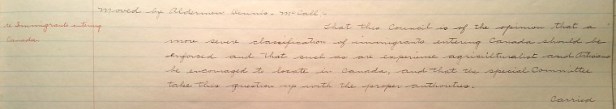 Moved by Alderman Dennis - McCall.
re Immigrants entering
Canada
That this Council is of the opinion that a
more severe classification of immigrants entering Canada should be
enforced and that such as are experience agriculturalist and
be encouraged to locate in Canada, and that the special Committee
take this question up with the proper authorities.
Carried